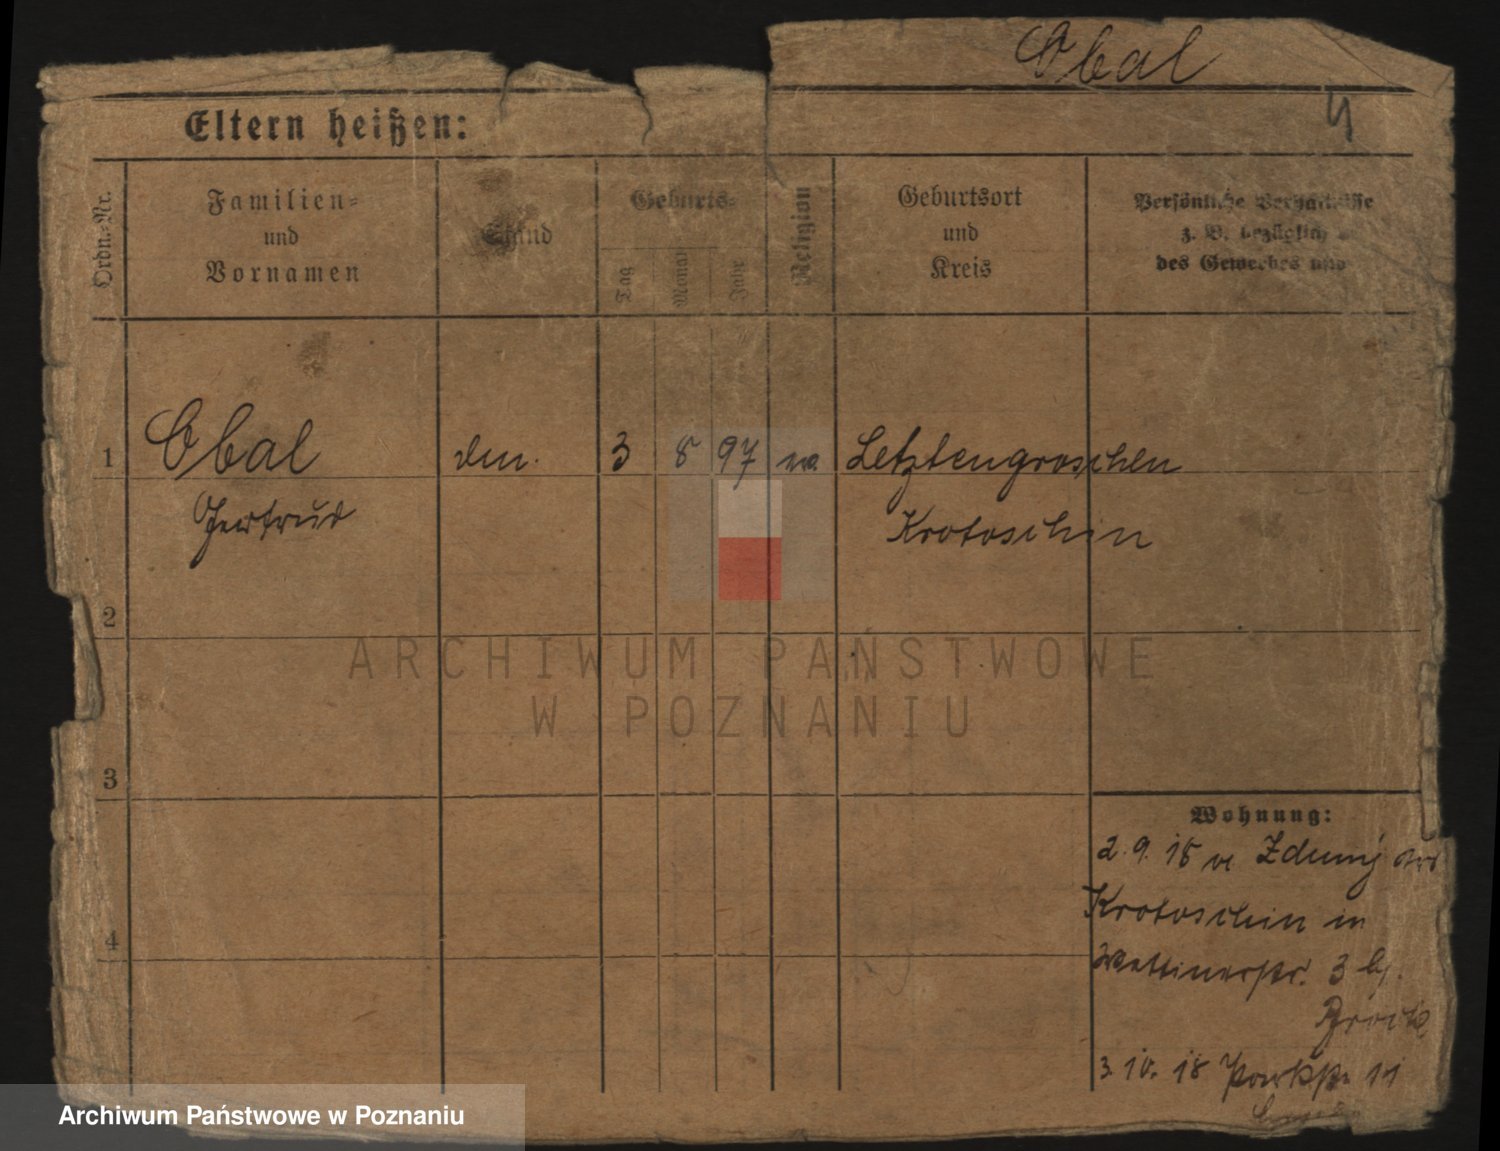 Obal
4
Eltern heißen:
Ordn.-Nr.
Familien-
und
Vornamen
Stand
Geburts-
Tag
Monat
Jahr
Religion
Geburtsort
und
Kreis
Persönliche Verhältnisse
z. B. bezüglich
des Gewerbes und
1 Obal 3 8 97 Letztengroschen
Gertrud Krotoschin
2
3
4
Wohnung:
2.9.18 Zduny
Krotoschin in
Wettinerstr. 3 b/.
3.10.18 Parkstr 11
ARCHIWUM PAŃSTWOWE
W POZNANIU
Archiwum Państwowe w Poznaniu